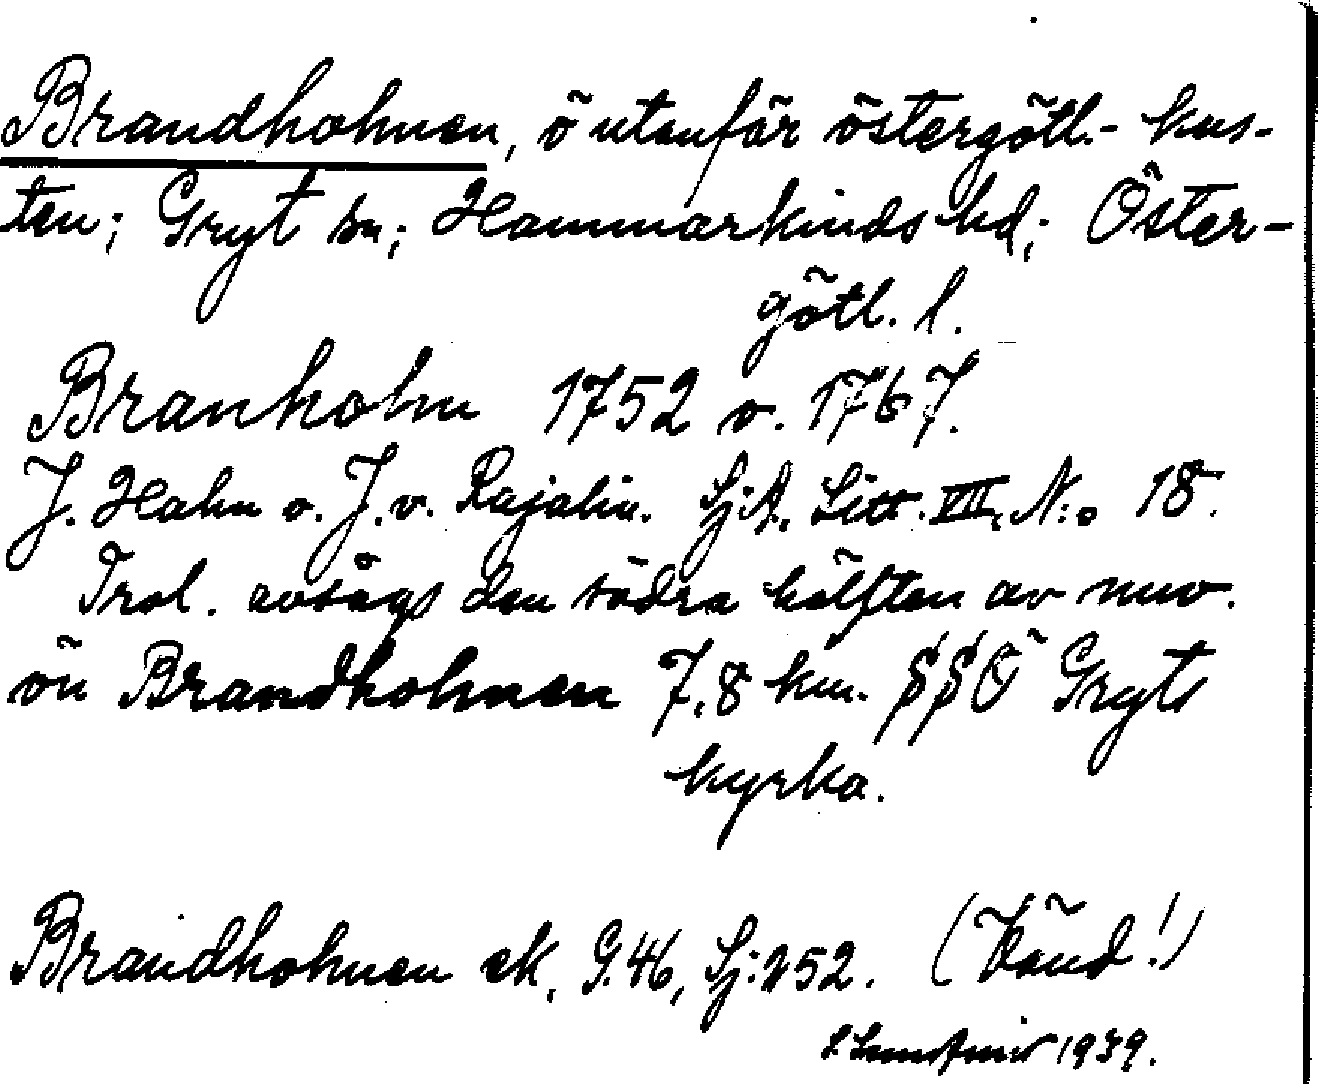 Brandholmen, ö utanför östergötl.- kus-
ten; Gryt sn; Hammarkinds hd; Öster-
götl. l.
Branholm 1752 o. 1767.
J. Hahn o. J. v. Rajalin. Sj.A. Litt. VII. N:o 18.
Trol. avsågs den södra hälften av nuv.
ön Brandholmen 7,8 km. SSÖ Gryts
kyrka.
Brandholmen ek. G.46, Sj:252. (Vänd!)
1939.